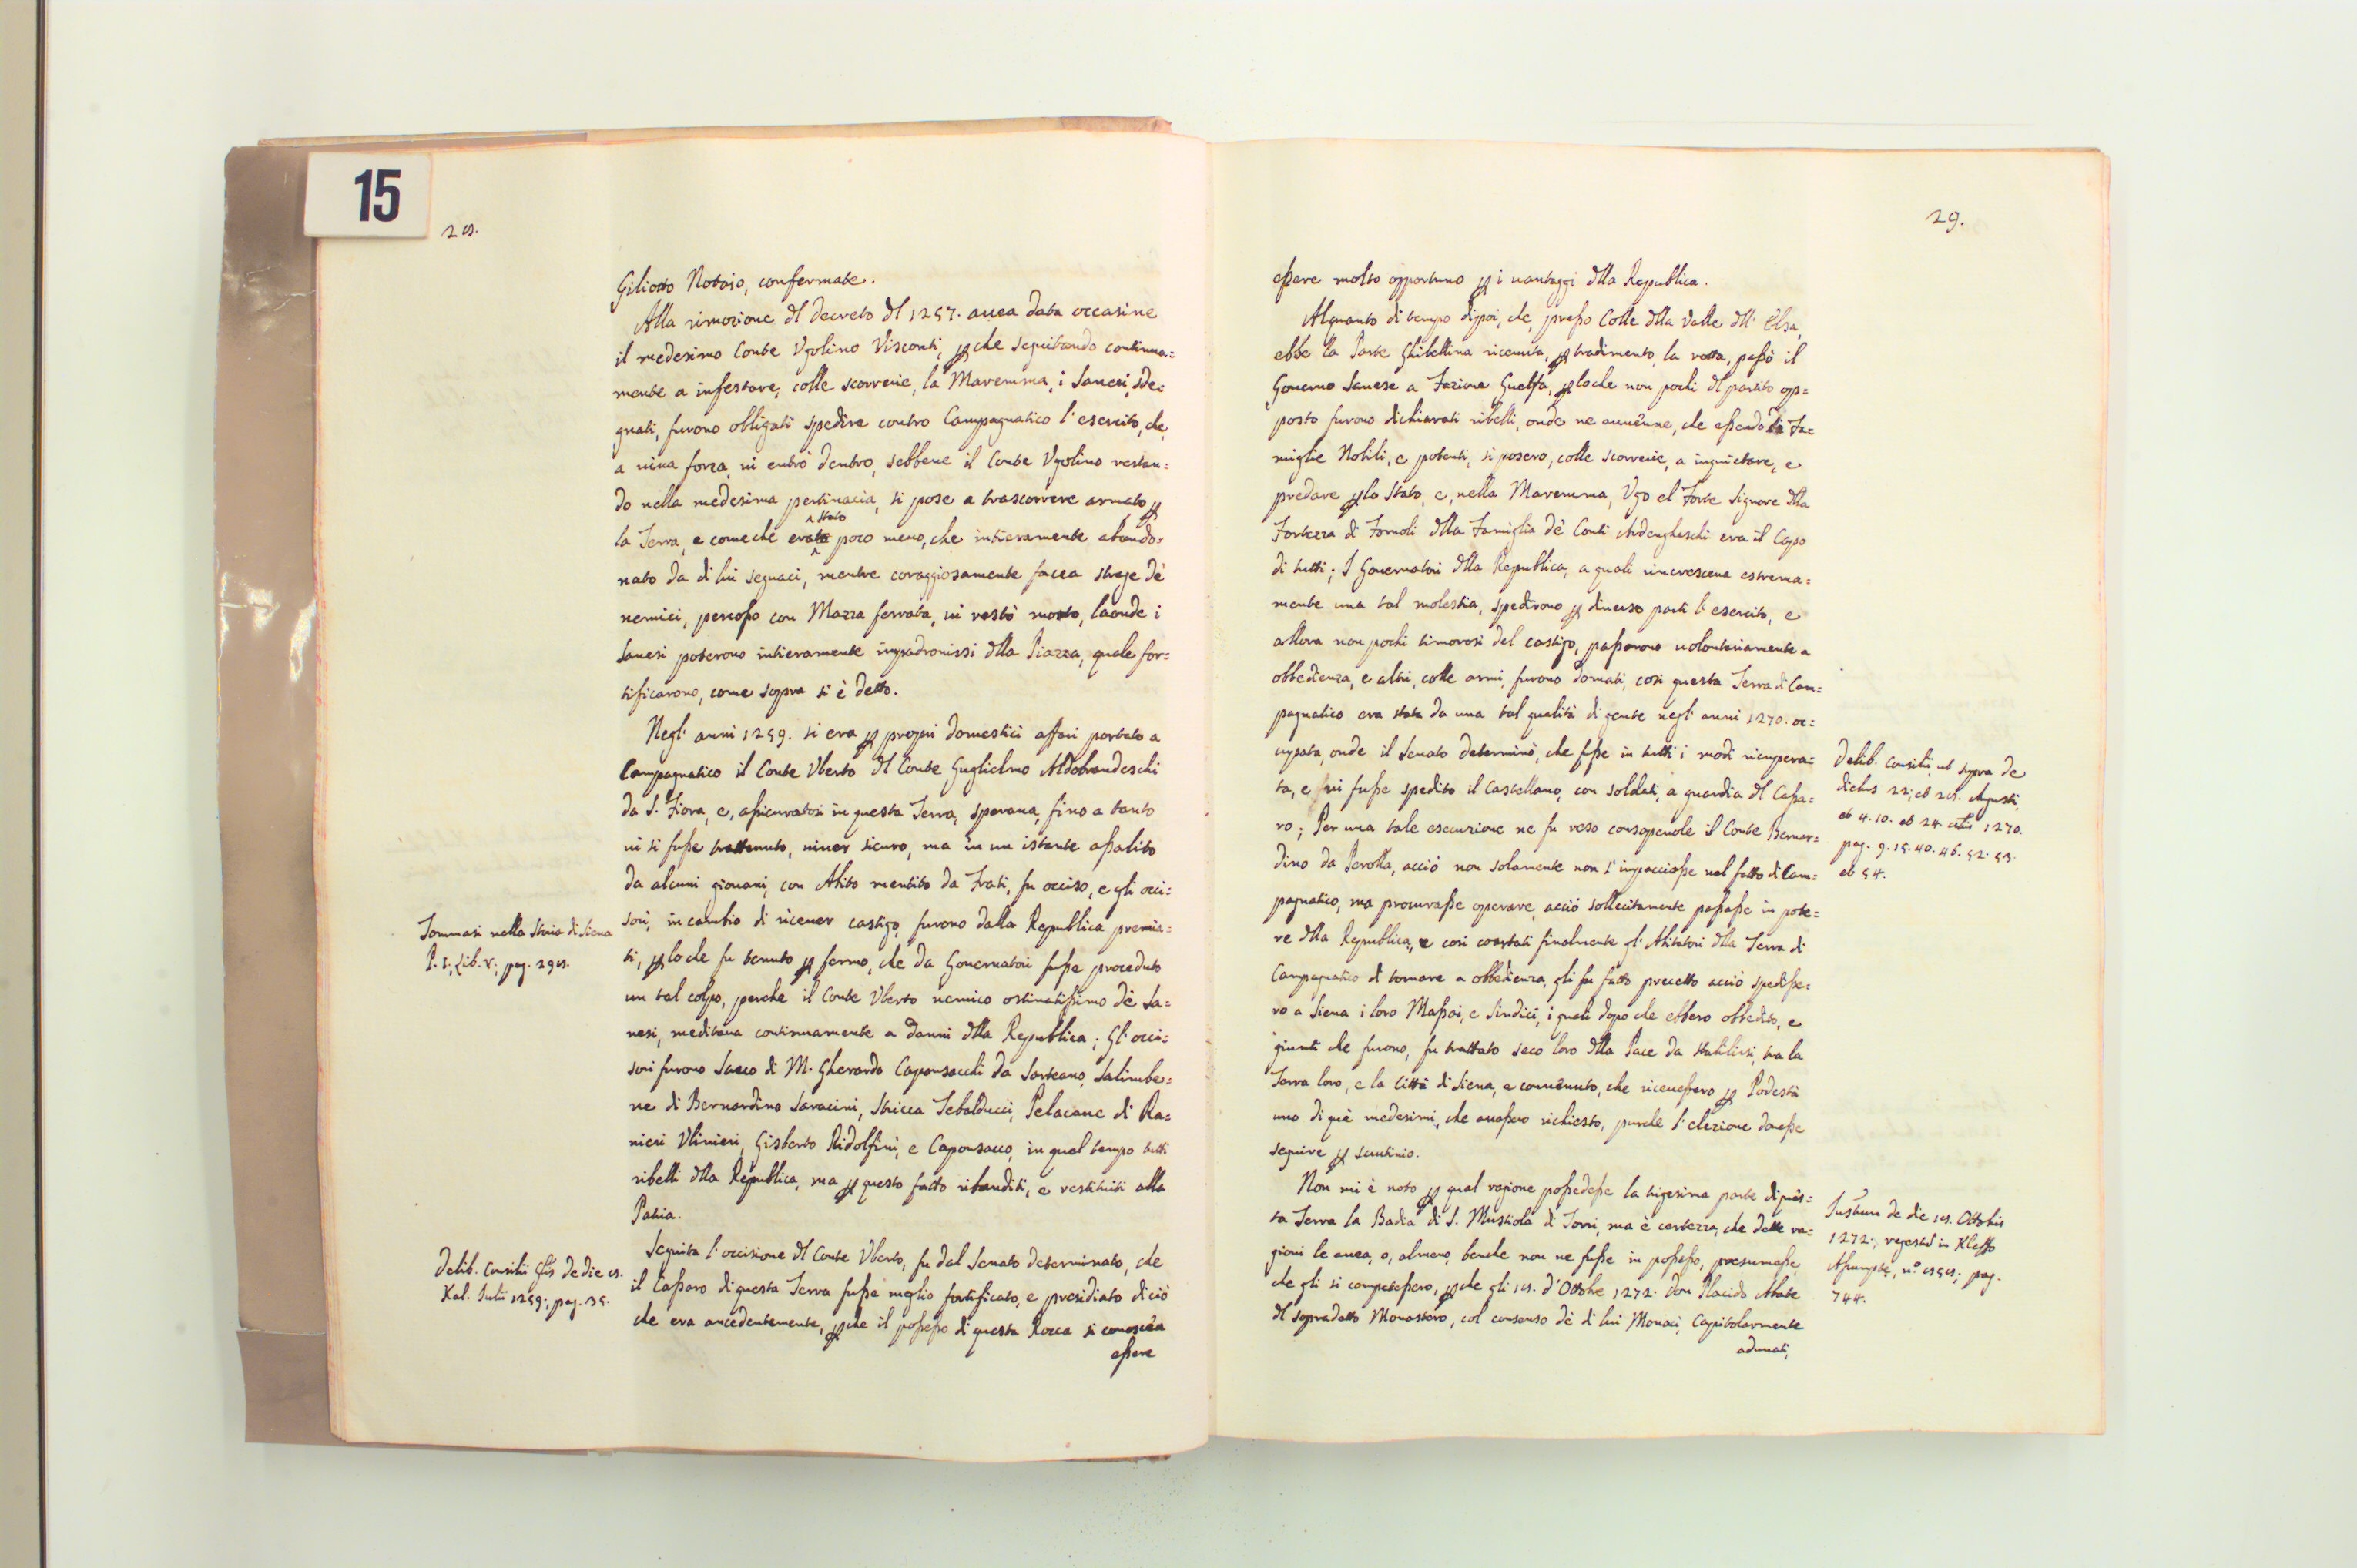 15
28.
Giliotto Notaio, confermate.
Alla rimozione dl decreto dl 1257. auea data occasine
il medesimo Conte Vgolino Visconti, p che seguitando continua=
mente a infestare, colle scorrerie, la Maremma, i Sanesi, sde=
gnati, furono obligati spedire contro Campagnatico l'esercito, che,
a uiua forza, ui entrò dentro, sebbene il Conte Vgolino restan=
do nella medesima pertinacia, si pose a trascorrere armato p
la Terra, e comeche era stato poco meno, che intieramente abando=
nato da di lui seguaci, mentre coraggiosamente facea strage dè
nemici, percosso con Mazza ferrata, ui restò morto, laonde i
Sanesi poterono intieramente impadronissi dlla Piazza, quale for=
tificarono, come sopra si è detto.
Negl' anni 1259. si era p proprj domestici affari portato a
Campagnatico il Conte Vberto dl Conte Guglielmo Aldobrandeschi
da S. Fiora, e, assicuratosi in questa Terra, speraua, fino a tanto
ui si fusse trattenuto, uiuer sicuro, ma in un istante assalito
da alcuni giouani, con Abito mentito da Frati, fu occiso, e gli occi=
sori, in cambio di riceuer castigo, furono dalla Republica premia=
ti, p loche fu tenuto p fermo, che da Gouernatori fusse proceduto
un tal colpo, perche il Conte Vberto nemico ostinatissimo dè Sa=
nesi, meditaua continuamente a danni dlla Republica; Gl' occi=
sori furono Sacco di M. Gherardo Caponsacchi da Sarteano, Salimbe=
ne di Bernardino Saracini, Stricca Tebalducci, Pelacane di Ra=
nieri Vliuieri, Gisberto Ridolfini, e Caponsacco, in quel tempo tutti
ribelli dlla Republica, ma p questo fatto ribanditi, e restituiti alla
Patria.
Seguita l'occisione dl Conte Vberto, fu dal Senato determinato, che
il Cassaro di questa Terra fusse meglio fortificato, e presidiato di ciò
che era antedentemente, p che il possesso di questa Rocca si conoscea
essere
Tommasi nella Storia di Siena
P. I; Lib. V; pag. 298.
Delib. Consilii Glis de die 8.
Kal. Iulii 1259. pag. 35.
29.
essere molto opportuno p i uantaggi dlla Republica.
Alquanto di tempo dipoi, che, presso Colle dlla Valle dll' Elsa,
ebbe la Parte Ghibellina riceuuta, p tradimento, la rotta, passò il
Gouerno Sanese a Fazione Guelfa, p loche non pochi dl partito op=
posto furono dichiarati ribelli, onde ne auuenne, che essendo di Fa=
miglie Nobili, e potenti, si posero, colle scorrerie, a inquietare, e
predare p lo Stato, e, nella Maremma, Vgo el Forte Signore dlla
Fortezza di Fornoli dlla Famiglia dè Conti Ardengheschi era il Capo
di tutti; I Gouernatori dlla Republica, a quali rincresceua estrema=
mente una tal molestia, spedirono p diuerse parti l'esercito, e
allora non pochi timorosi del castigo, passarono uolontariamente a
obbedienza, e altri, colle armi, furono domati, così questa Terra di Cam=
pagnatico era stata da una tal qualità di gente negl' anni 1270. oc=
cupata, onde il Senato determinò, che fusse in tutti i modi ricupera=
ta, e ui fusse spedito il Castellano, con soldati, a guardia dl Cassa=
ro; Per una tale esecuzione ne fu reso consapeuole il Conte Bernar=
dino da Perolla, acciò non solamente non s'impacciasse nel fatto di Cam=
pagnatico, ma procurasse operare, acciò sollecitamente passasse in pote=
re dlla Republica, e così coartati finalmente gl' Abitatori dlla Terra di
Campagnatico di tornare a obbedienza, gli fu fatto precetto acciò spedisse=
ro a Siena i loro Massai, e Sindici, i quali dopo che ebbero obbedito, e
giunti che furono, fu trattato seco loro dlla Pace da stabilirsi, tra la
Terra loro, e la Città di Siena, e conuenuto, che riceuessero p Podestà
uno di què medesimi, che auessero richiesto, purche l'elezione douesse
seguire p scrutinio.
Non mi è noto p qual ragione possedesse la trigesima parte di ques=
ta Terra la Badia di S. Mustiola di Torri, ma è certezza, che dette ra=
gioni le auea, o, almeno, benche non ne fusse in possesso, presumesse,
che gli si competessero, p che gli 18. d'Ottobre 1272. Don Placido Abate
dl sopradetto Monastero, col consenso dè di lui Monaci, Capitolarmente
adunati,
Delib. Consilii, ut supra de
diebus 22; et 28. Agusti,
et 4. 10. et 24. 1270.
pag. 9. 15. 40. 46. 52. 53.
et 54.
Instrum de die 18. Ottobris
1272; regestd in Kleffo
Assumptæ, n.° 858; pag.
744.